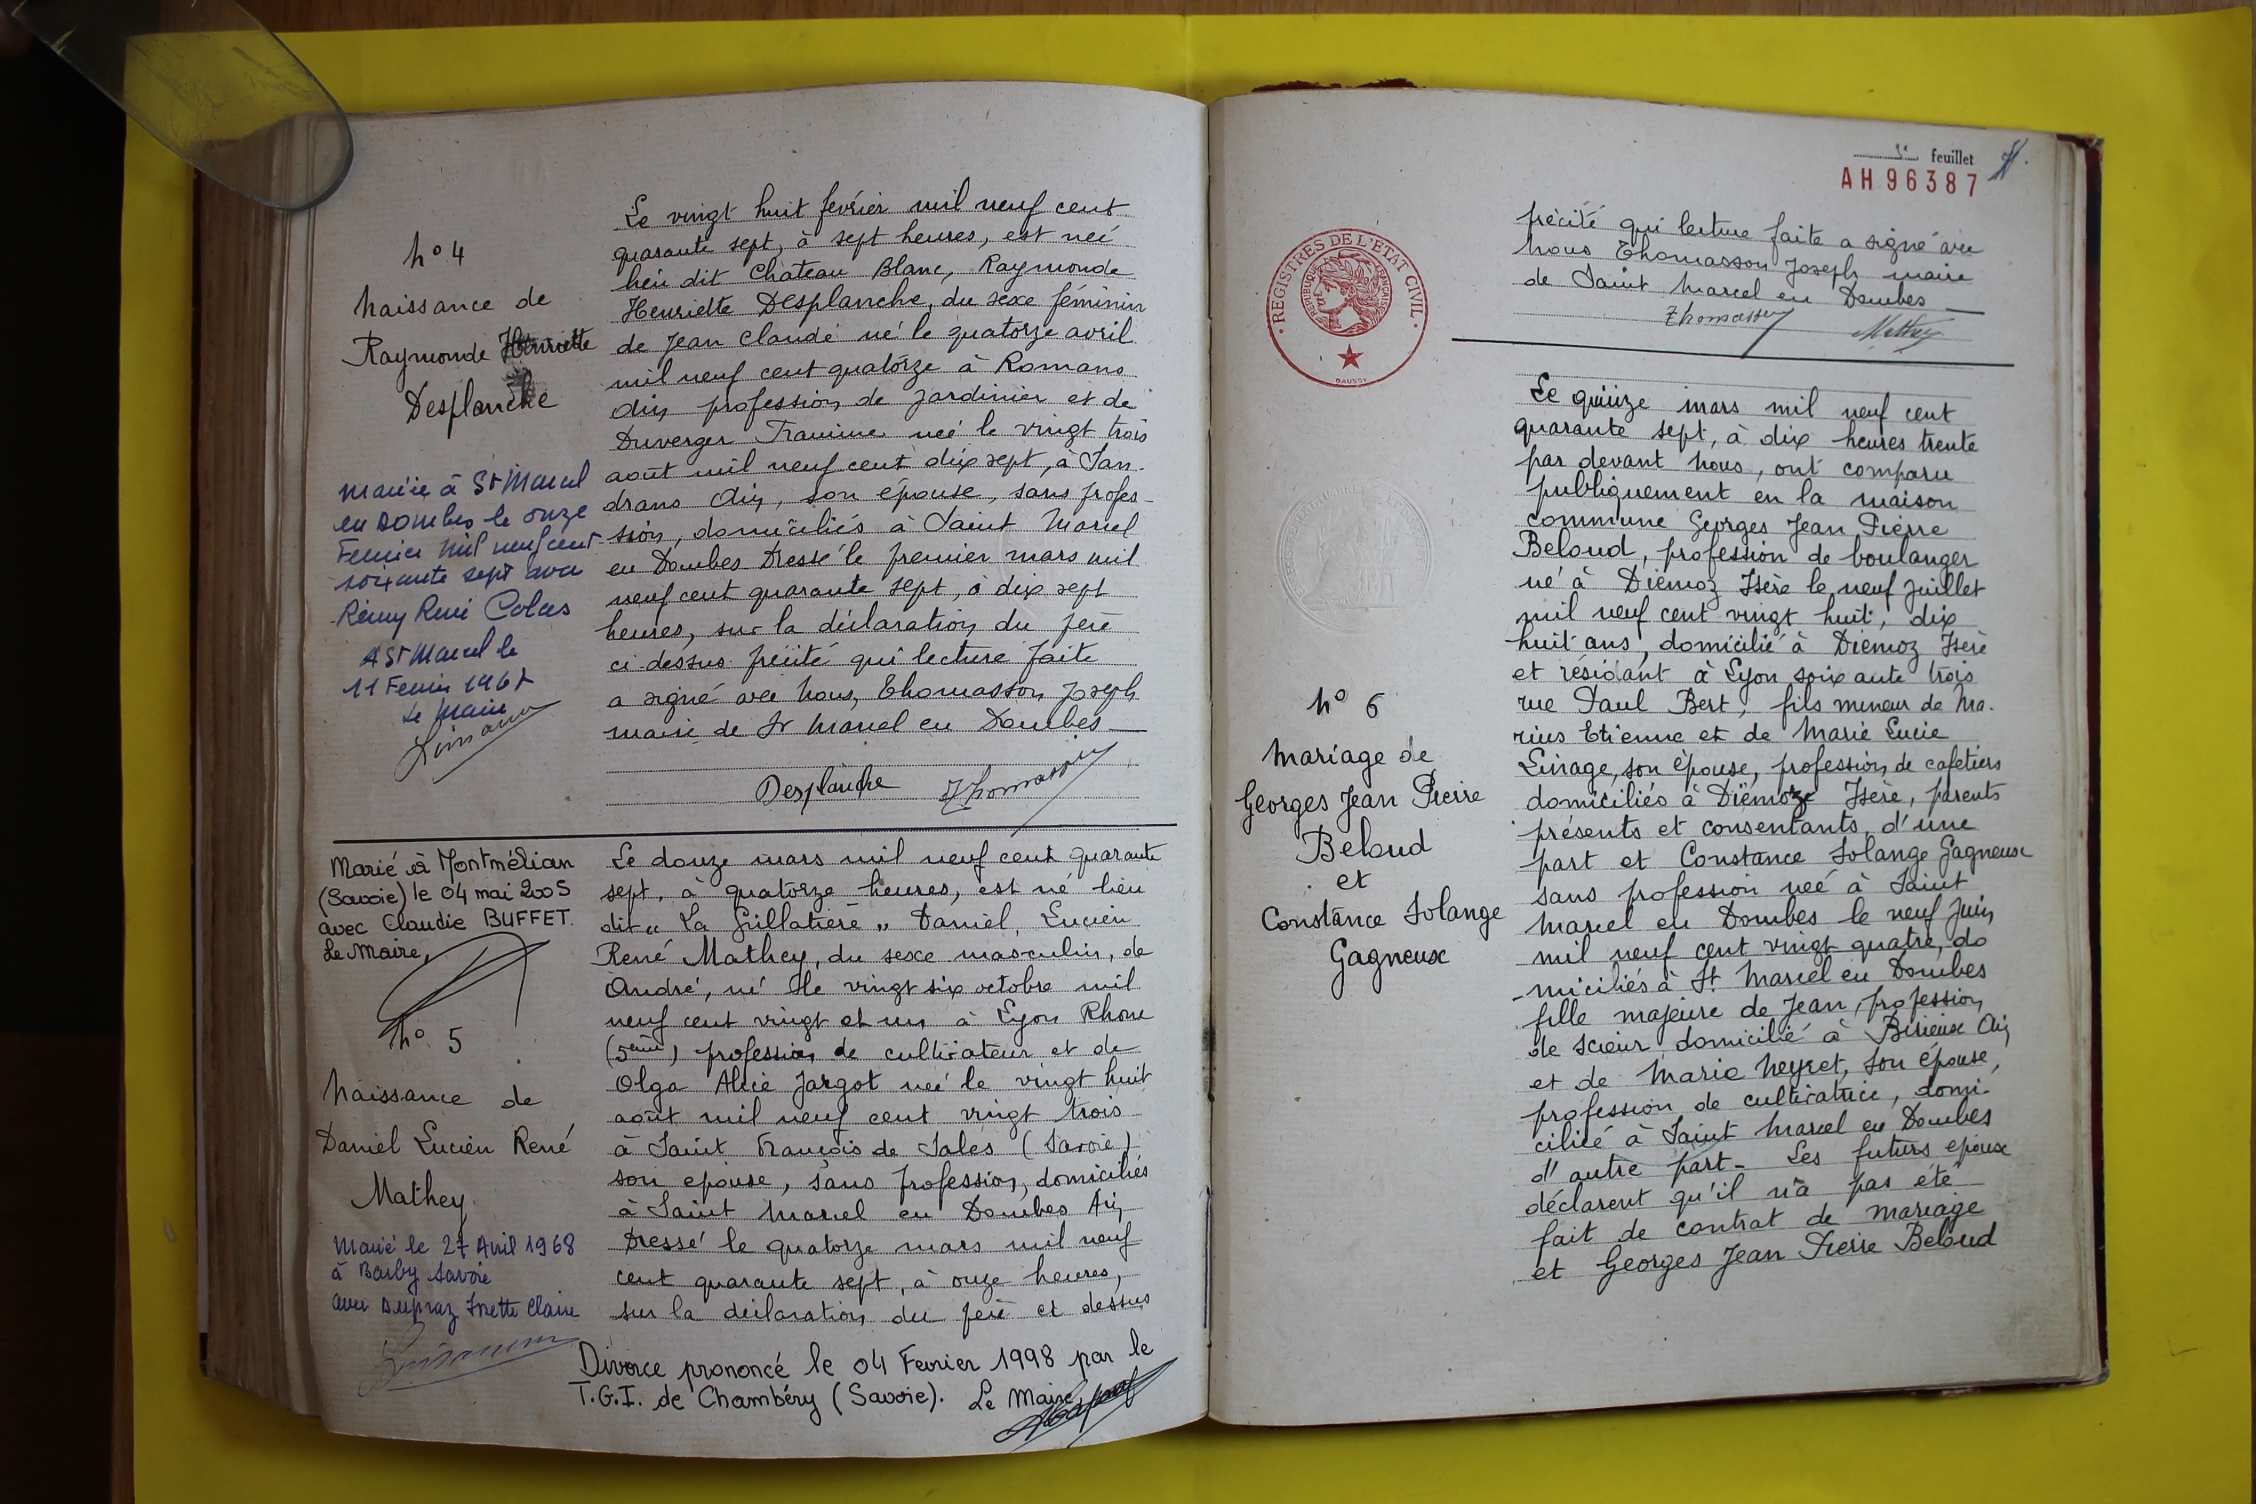 n° 4
Naissance de
Raymonde Henriette
Desplanche
Mariée à St Marcel
en Dombes le onze
Fevrier mil neuf cent
soixante sept avec
Rémy René Colas
A St Marcel le
11 Fevrier 1967
Le Maire
Le vingt huit février mil neuf cent
quarante sept, à sept heures, est neé
lieu dit Chateau Blanc, Raymonde
Henriette Desplanche, du sexe féminin
de Jean Claude né le quatorze avril
mil neuf cent quatorze à Romans
Ain profession de jardinier et de
Duverger Francine neé le vingt trois
août mil neuf cent dix sept, à San-
drans Ain, son épouse, sans profes-
sion, domiciliés à Saint Marcel
en Dombes Dressé le premier mars mil
neuf cent quarante sept, à dix sept
heures, sur la déclaration du père
ci dessus précité qui lecture faite
a signé avec nous, Thomasson Joseph
maire de St Marcel en Dombes
Desplanche Thomasson
Marié à Montmélian
(Savoie) le 04 mai 2005
avec Claudie BUFFET.
Le Maire,
n° 5
Naissance de
Daniel Lucien René
Mathey
Marié le 27 Avril 1968
à Barby Savoie
avec Dupraz Ginette Claire
Le douze mars mil neuf cent quarante
sept, à quatorze heures, est né lieu
dit " La Grillatière " Daniel, Lucien
René Mathey, du sexe masculin, de
André, né le vingt six octobre mil
neuf cent vingt et un à Lyon Rhone
(5eme) profession de cultivateur et de
Olga Alice Jargot neé le vingt huit
août mil neuf cent vingt trois
à Saint François de Sales (Savoie)
son epouse, sans profession, domiciliés
à Saint Marcel en Dombes Ain
Dressé le quatorze mars mil neuf
cent quarante sept, à onze heures,
sur la déclaration du père ci dessus
Divorce prononcé le 04 Fevrier 1998 par le
T.G.I. de Chambéry (Savoie). Le Maire,
feuillet
AH 96387
REGISTRES DE L'ETAT CIVIL
REPUBLIQUE FRANÇAISE
DAUSSY
précité qui lecture faite a signé avec
nous Thomasson Joseph maire
de Saint Marcel en Dombes
Thomasson Mathey
n° 6
Mariage de
Georges Jean Pierre
Beloud
et
Constance Solange
Gagneux
Le quinze mars mil neuf cent
quarante sept, à dix heures trente
par devant nous, ont comparu
publiquement en la maison
commune Georges Jean Pierre
Beloud, profession de boulanger
né à Diémoz Isère le neuf juillet
mil neuf cent vingt huit, dix
huit ans, domicilié à Diémoz Isère
et résidant à Lyon soixante trois
rue Paul Bert, fils mineur de Ma-
rius Etienne et de Marie Lucie
Linage, son épouse, profession de cafetiers
domiciliés à Diémoz Isère, parents
présents et consentants d'une
part et Constance Solange Gagneux
sans profession neé à Saint
Marcel en Dombes le neuf juin
mil neuf cent vingt quatre, do
miciliés à St Marcel en Dombes
fille majeure de Jean, profession
de scieur domicilié à Birieux Ain
et de Marie Neyret, son épouse,
profession de cultivatrice, domi-
ciliée à Saint Marcel en Dombes
d'autre part - Les futurs epoux
déclarent qu'il n'a pas été
fait de contrat de mariage
et Georges Jean Pierre Beloud